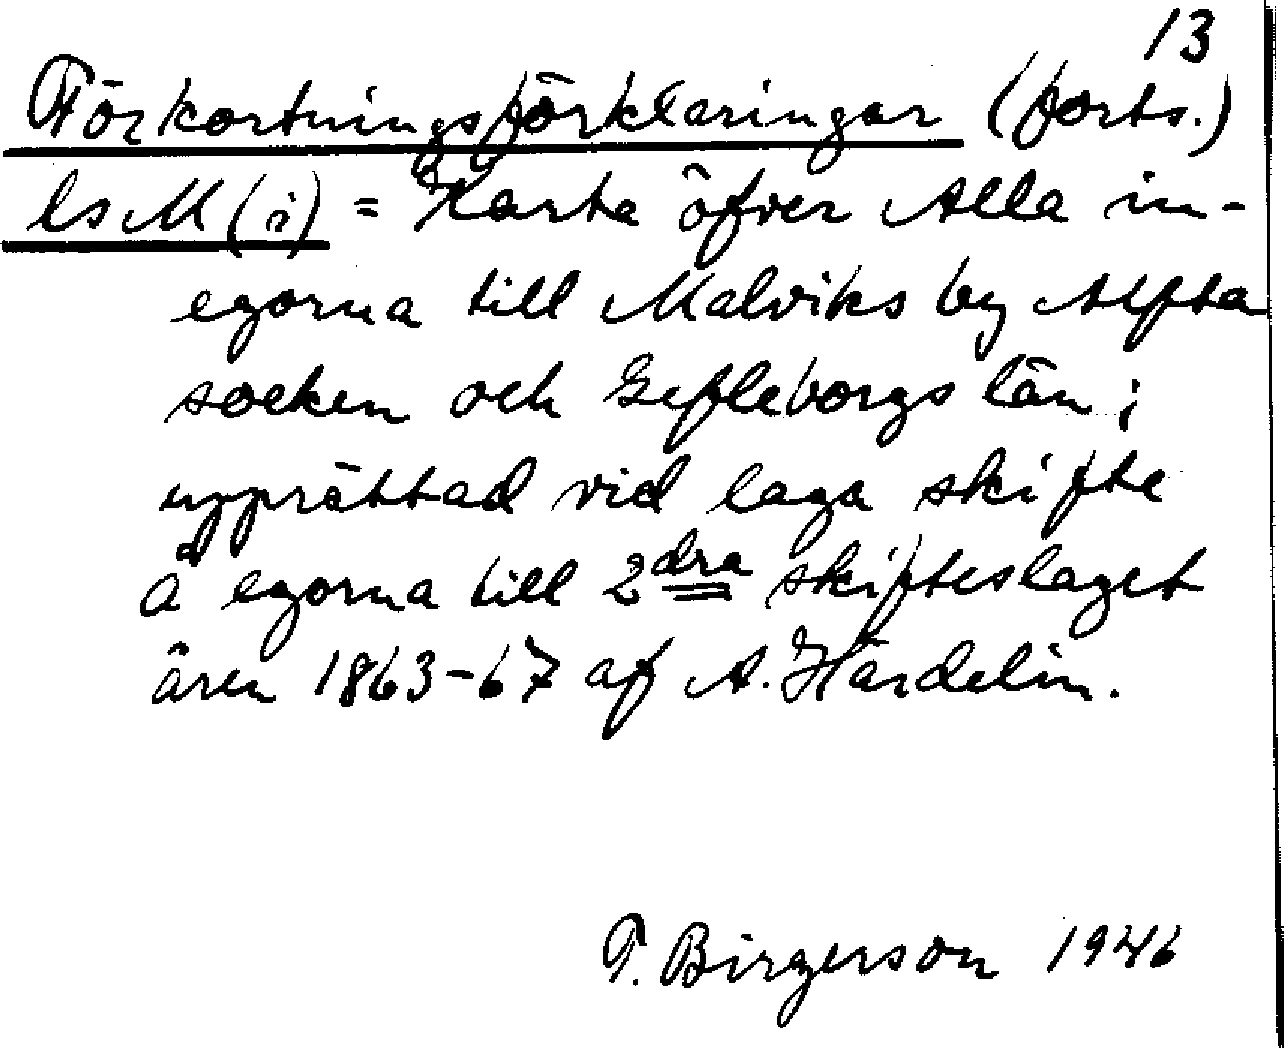 13
Förkortningsförklaringar (forts.)
ls M (i) = Karta öfver Alla in-
egorna till Malviks by Alfta
socken och Gefleborgs län;
upprättad vid laga skifte
å egorna till 2dra skifteslaget
åren 1863-67 af A. Hårdelin.
F. Birgerson 1946